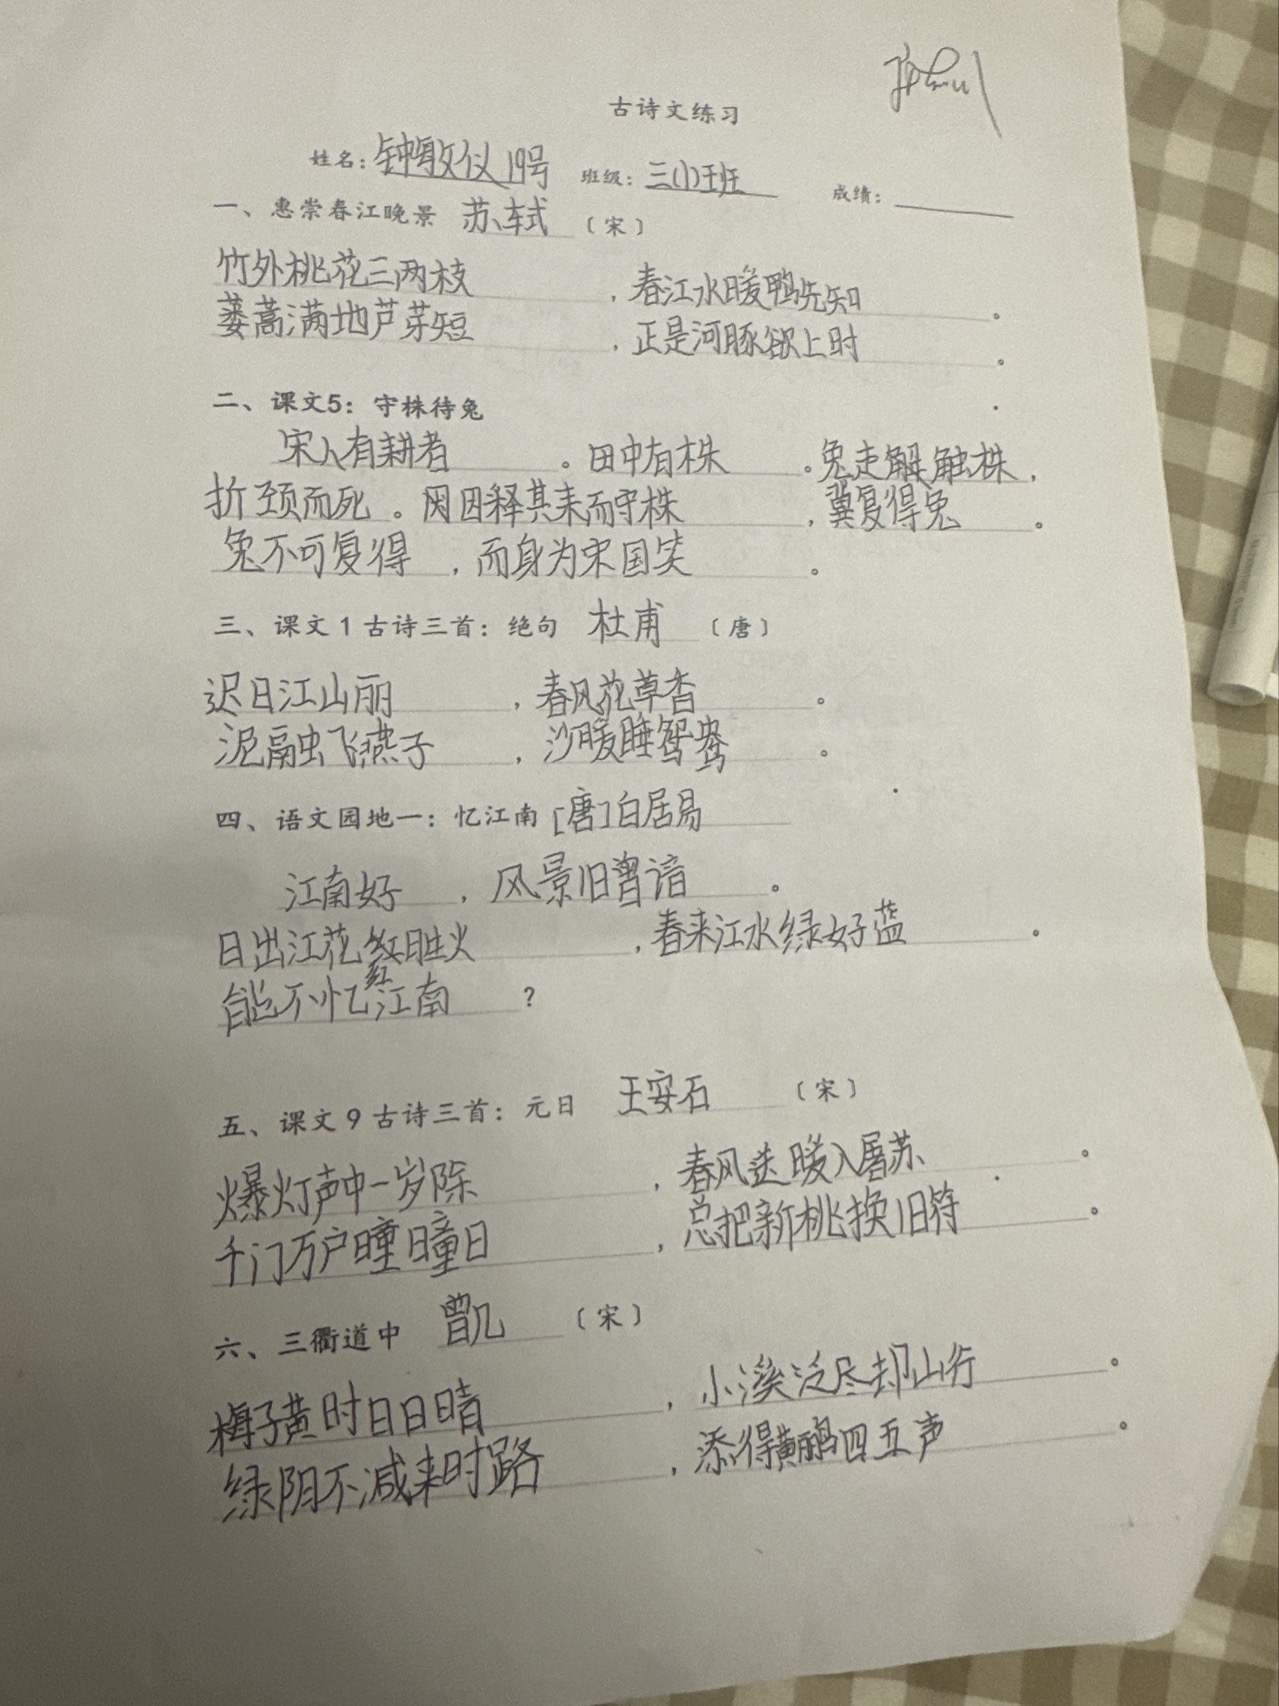 古诗文练习
姓名：钟敏仪19号 班级：三(1)班 成绩：
一、惠崇春江晚景 苏轼 〔宋〕
竹外桃花三两枝，春江水暖鸭先知。
蒌蒿满地芦芽短，正是河豚欲上时。
二、课文5：守株待兔
宋人有耕者。田中有株。兔走解触株，
折颈而死。因释其耒而守株，冀复得兔。
兔不可复得，而身为宋国笑。
三、课文1古诗三首：绝句 杜甫 〔唐〕
迟日江山丽，春风花草香。
泥融虫飞燕子，沙暖睡鸳鸯。
四、语文园地一：忆江南[唐]白居易
江南好，风景旧曾谙。
日出江花红胜火，春来江水绿好蓝。
能不忆江南？
五、课文9古诗三首：元日 王安石 〔宋〕
爆灯声中一岁除，春风送暖入屠苏。
千门万户曈曈日，总把新桃换旧符。
六、三衢道中 曾几 〔宋〕
梅子黄时日日晴，小溪泛尽却山行。
绿阴不减来时路，添得黄鹂四五声。